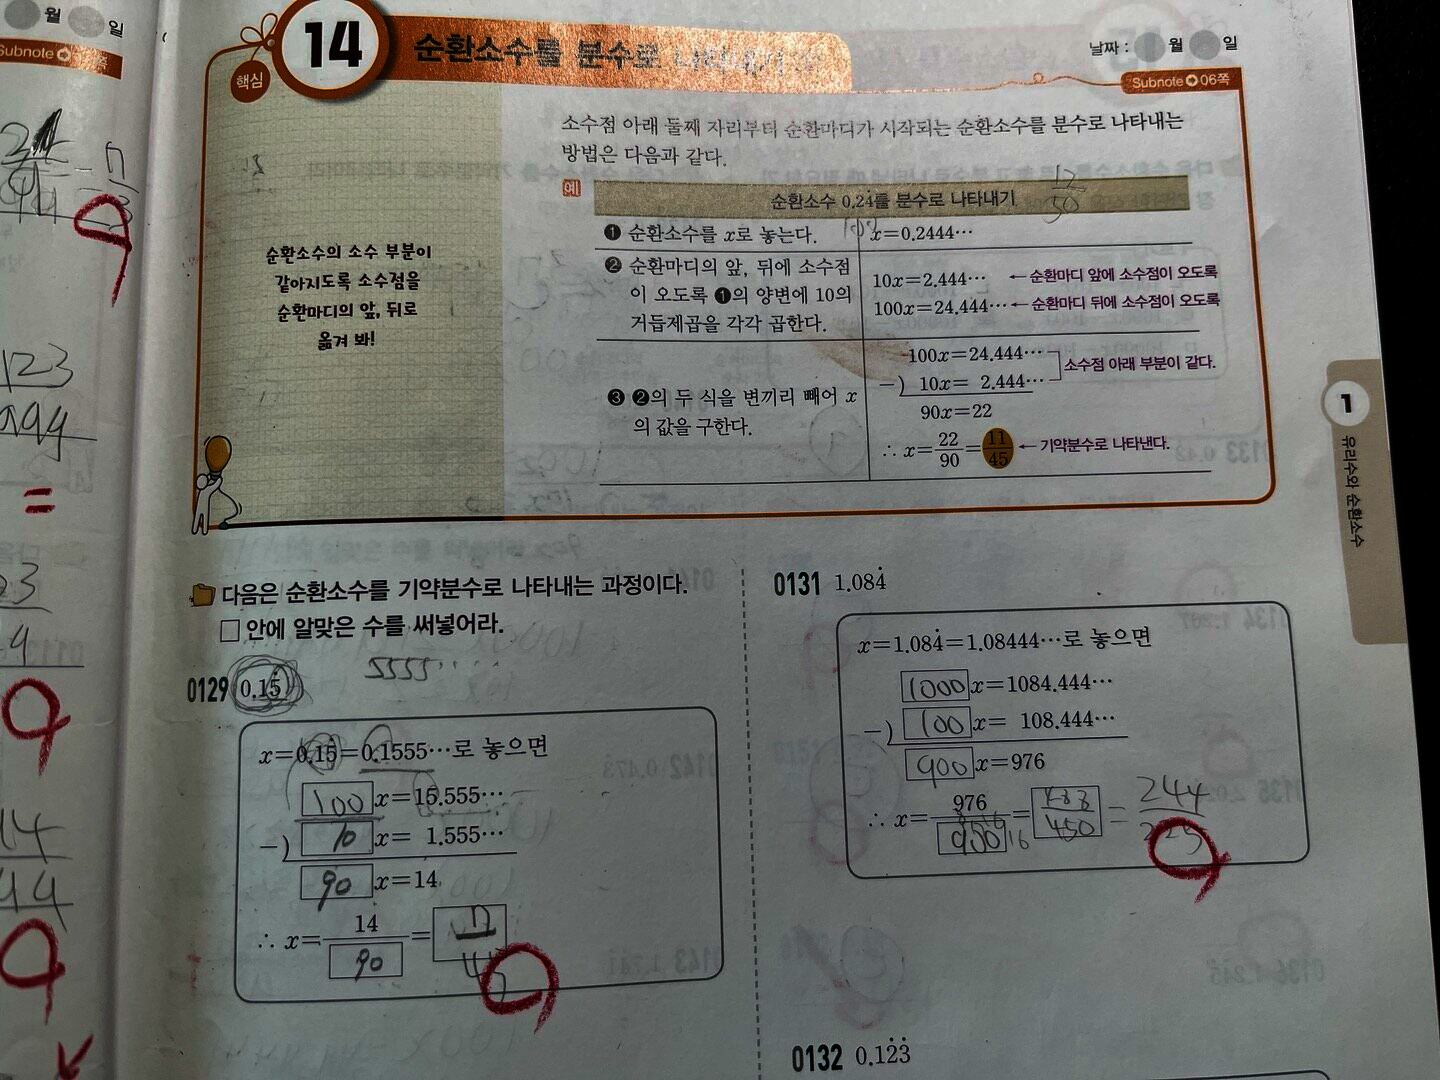 월 일
Subnote 쪽
14
핵심
순환소수를 분수로 나타내기
날짜 : 월 일
Subnote 06쪽
순환소수의 소수 부분이
같아지도록 소수점을
순환마디의 앞, 뒤로
옮겨 봐!
소수점 아래 둘째 자리부터 순환마디가 시작되는 순환소수를 분수로 나타내는
방법은 다음과 같다.
예
순환소수 0.24̇를 분수로 나타내기
12/50
❶ 순환소수를 x로 놓는다.
x=0.2444…
❷ 순환마디의 앞, 뒤에 소수점
이 오도록 ❶의 양변에 10의
거듭제곱을 각각 곱한다.
10x=2.444… ← 순환마디 앞에 소수점이 오도록
100x=24.444… ← 순환마디 뒤에 소수점이 오도록
❸ ❷의 두 식을 변끼리 빼어 x
의 값을 구한다.
100x=24.444…
−) 10x= 2.444…
소수점 아래 부분이 같다.
90x=22
∴ x=22/90=11/45 ← 기약분수로 나타낸다.
1
유리수와 순환소수
다음은 순환소수를 기약분수로 나타내는 과정이다.
□ 안에 알맞은 수를 써넣어라.
5555...
0129 0.15̇
x=0.15̇=0.1555…로 놓으면
100 x=15.555…
−) 10 x= 1.555…
90 x=14
∴ x=14/90=7/45
0131 1.084̇
x=1.084̇=1.08444…로 놓으면
1000 x=1084.444…
−) 100 x= 108.444…
900 x=976
∴ x=976/900=488/450=244/225
0132 0.12̇3̇